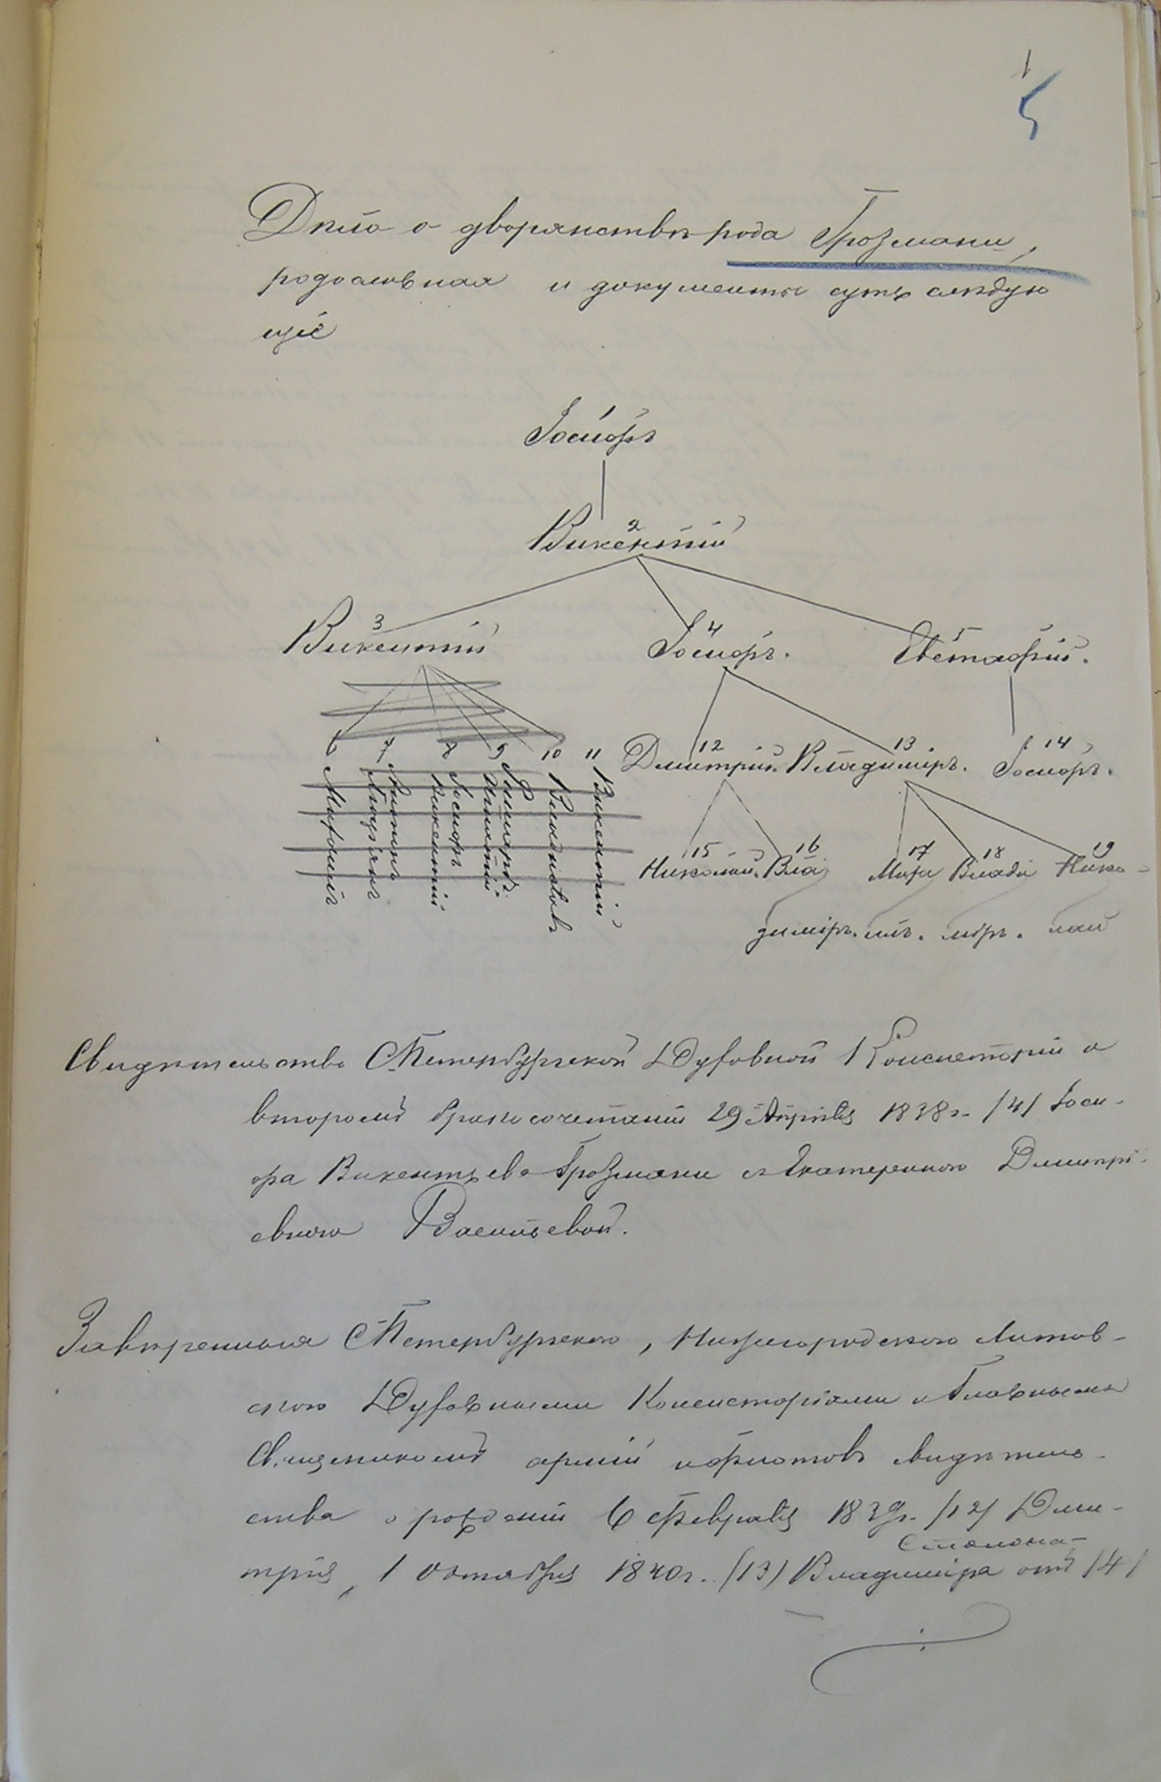 1
5
Дѣло о дворянствѣ рода Грозмани,
родословная и документы суть слѣдую
щіе
1
Іосифъ
2
Викентій
3 4 5
Викентій Іосифъ. Евстафій.
6 7 8 9 10 11 12 13 14
Викентій Дмитрій. Владиміръ. Іосифъ.
15 16 17 18 19
Николай. Вла Миха Влади Нико-
диміръ. илъ. міръ. лай
Свидѣтельство СПетербургской Духовной Консисторіи о
второмъ бракосочетаніи 29 Апрѣля 1838 г. /4/ Іоси-
фа Викентьева Грозмани съ Екатериною Дмитрі-
евною Васильевой.
Завѣренныя СПетербургскою, Нижегородскою Литов-
скою Духовными Консисторіями и Главнымъ
Священникомъ арміи и флотовъ свидѣтель-
ства о рожденіи 6 Февраля 1839 г. /12/ Дми-
трія, 1 Октября 1840 г. /13/ Владиміра отъ /4/